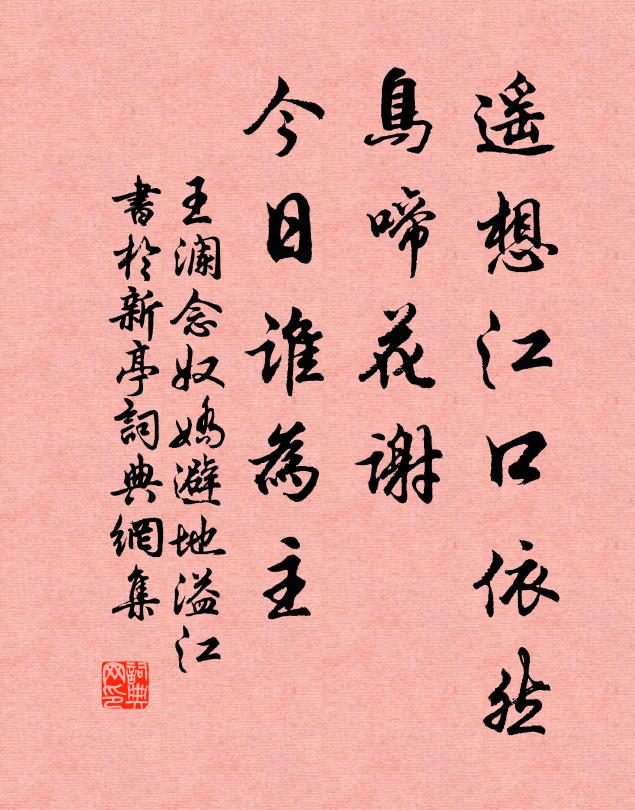 遥想江口依然
鳥啼花謝
今日誰為主
王瀾念奴嬌避地溢江
書於新亭詞典網集
詞典網印